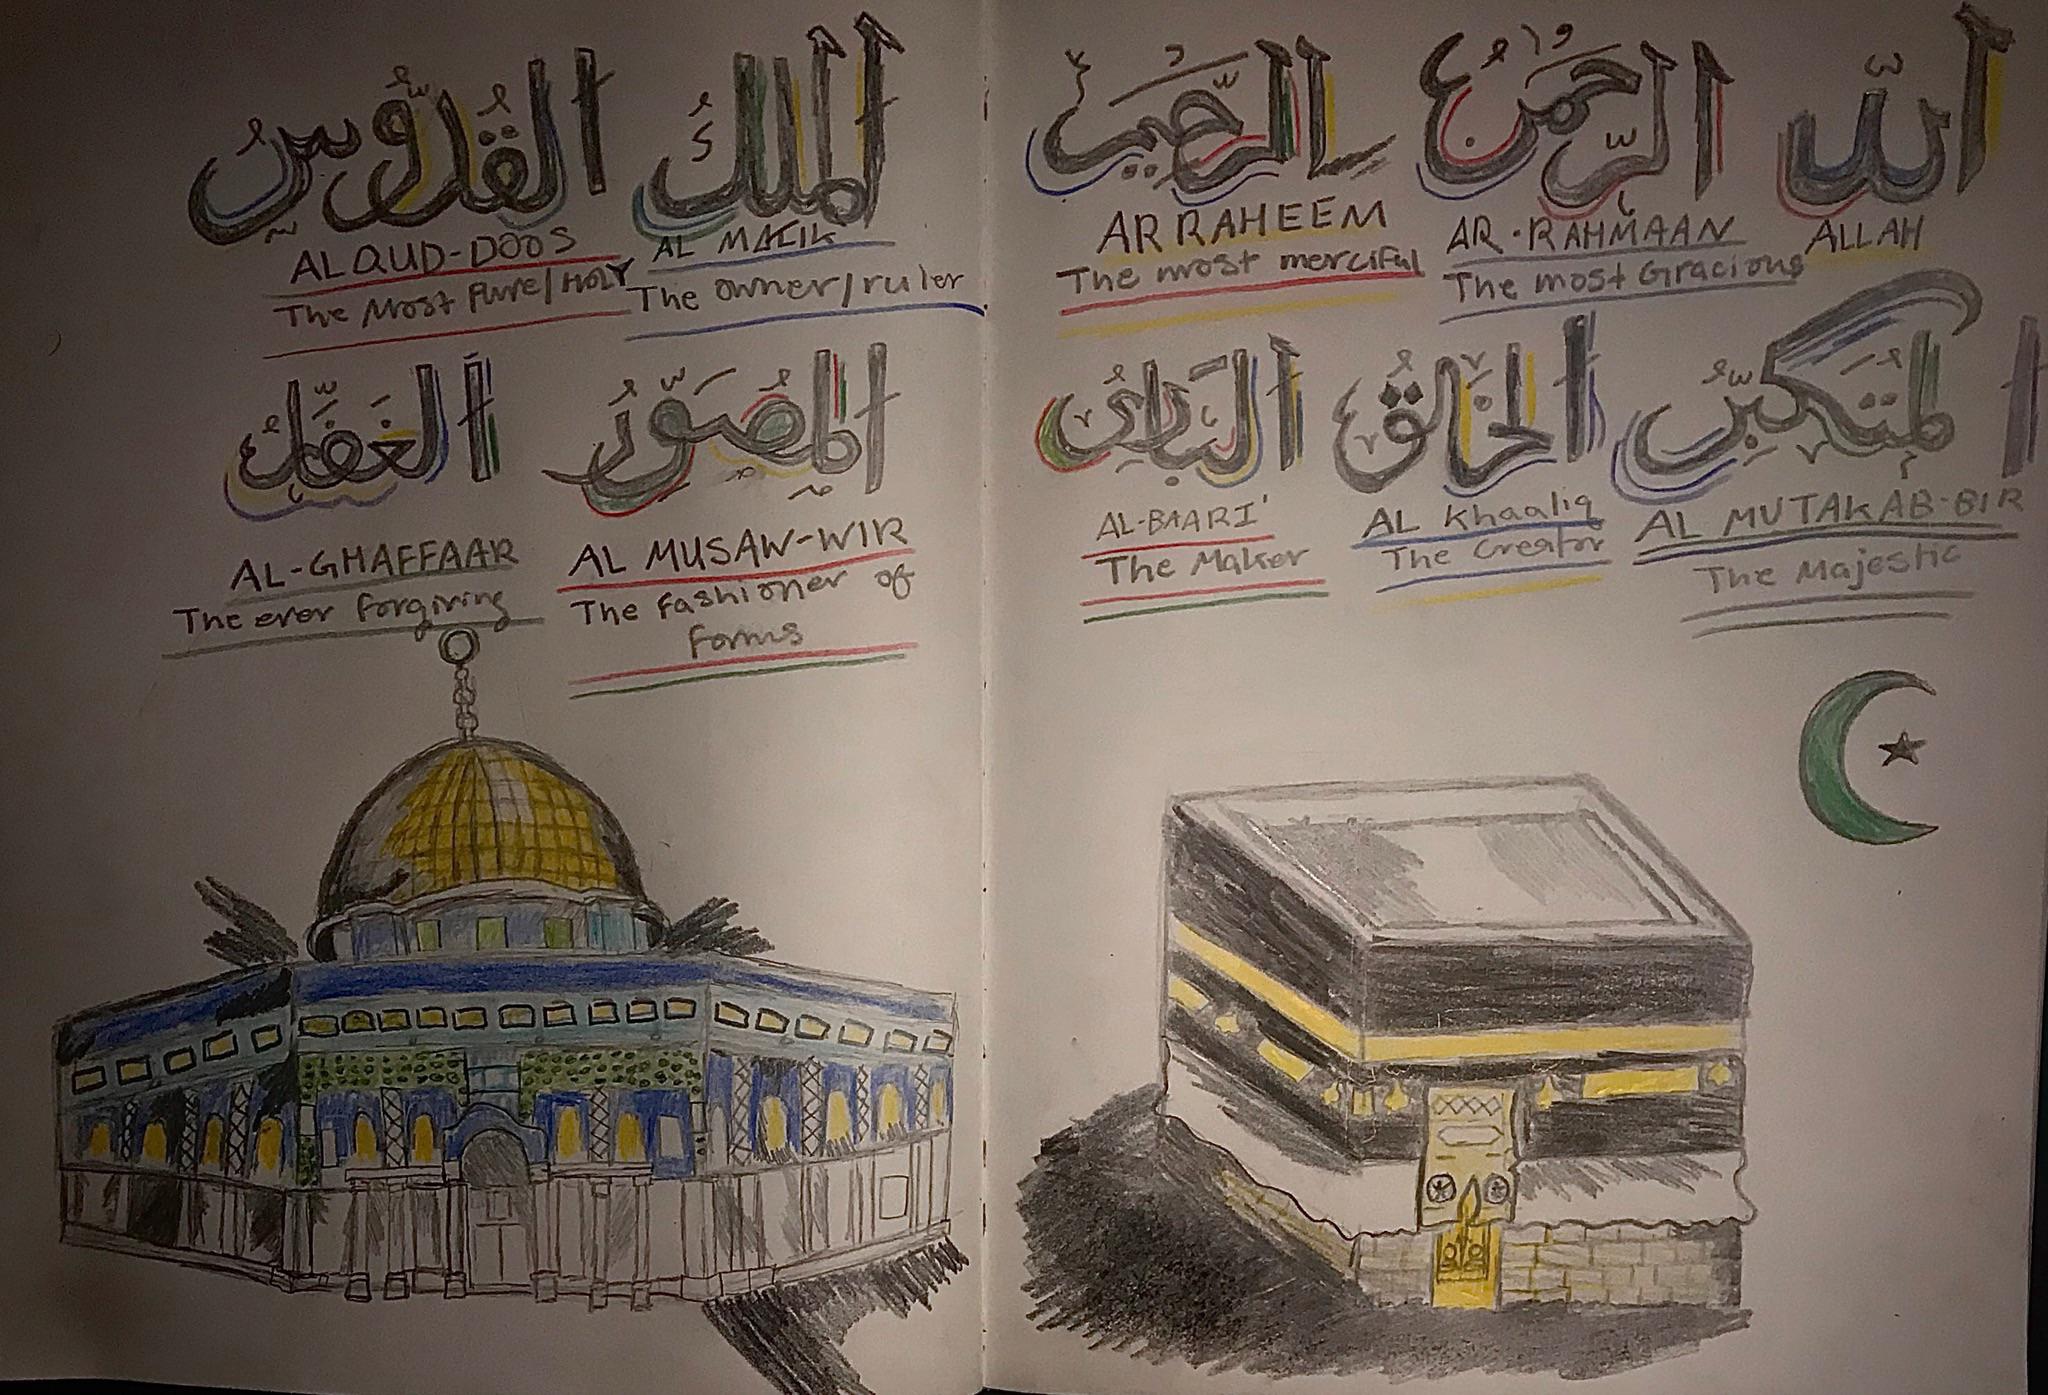 اَللّٰه
ALLAH
الرَّحْمٰنُ
AR-RAHMAAN
The most Gracious
الرَّحِيمُ
AR RAHEEM
The most merciful
اَلْمَلِكُ
AL MALIK
The owner/ruler
الْقُدُّوسُ
AL QUD-DOOS
The Most Pure/HOLY
الْمُتَكَبِّرُ
AL MUTAKAB-BIR
The Majestic
الْخَالِقُ
AL Khaaliq
The Creator
الْبَارِئُ
AL-BAARI'
The Maker
الْمُصَوِّرُ
AL MUSAW-WIR
The fashioner of
forms
AL-GHAFFAAR
The ever forgiving